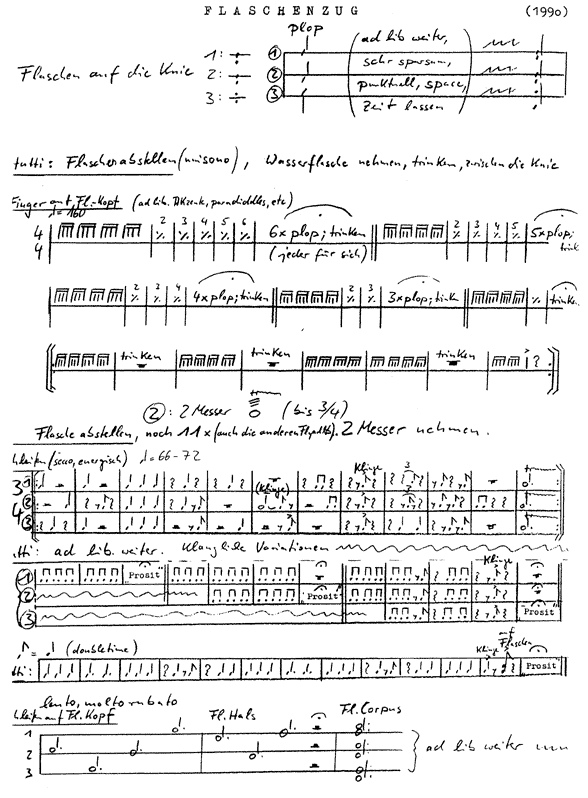 FLASCHENZUG (1990)
plop
Flaschen auf die Knie
1: 2: 3:
① ② ③
ad lib weiter,
sehr sparsam,
punktuell, space,
Zeit lassen
tutti: Flaschenabstellen (unisono), Wasserflasche nehmen, trinken, zwischen die Knie
Finger auf Fl.-Kopf (ad lib. Akzente, paradiddles, etc)
♩= 160
4 4 2 3 4 5 6 6x plop; trinken 2 3 4 5 5x plop;
(jeder für sich) trink
2 3 4 4x plop; trinken 2 3 3x plop; trink trinken
trinken trinken trinken
②: 2 Messer (bis 3/4)
Flasche abstellen, noch 11x (auch die anderen). 2 Messer nehmen.
(secco, energisch) ♩= 66-72
3 4 1 2 3 (Klinge) Klinge 3
tti: ad lib. weiter. Klangliche Variationen
1 Prosit Klinge
2 Prosit
3 Prosit
♪ = ♩ (doubletime)
tti: Klinge f Flaschen Prosit
lento, molto rubato
auf Fl. Kopf Fl. Hals Fl. Corpus
1
2
3
ad lib weiter